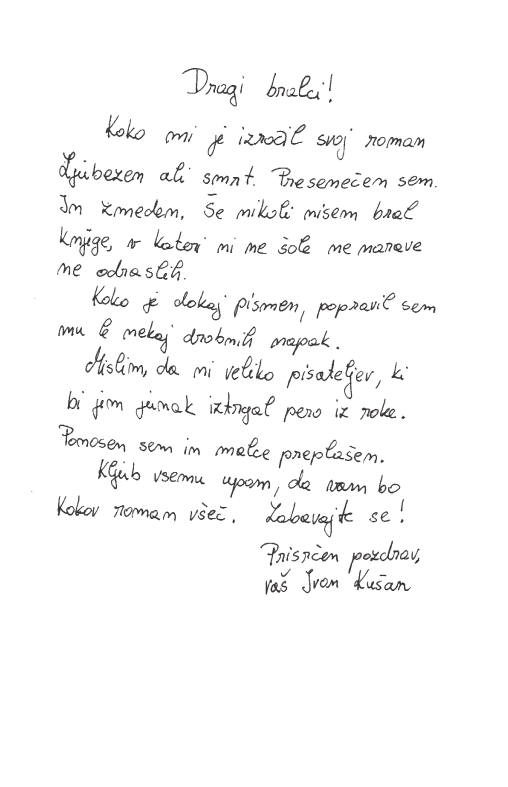 Dragi bralci!
Koko mi je izročil svoj roman
Ljubezen ali smrt. Presenečen sem.
In zmeden. Še nikoli nisem bral
knjige, v kateri ni ne šole ne narave
ne odraslih.
Koko je dokaj pismen, popravil sem
mu le nekaj drobnih napak.
Mislim, da ni veliko pisateljev, ki
bi jim junak iztrgal pero iz roke.
Ponosen sem in malce preplašen.
Kljub vsemu upam, da vam bo
Kokov roman všeč. Zabavajte se!
Prisrčen pozdrav,
vaš Ivan Kušan